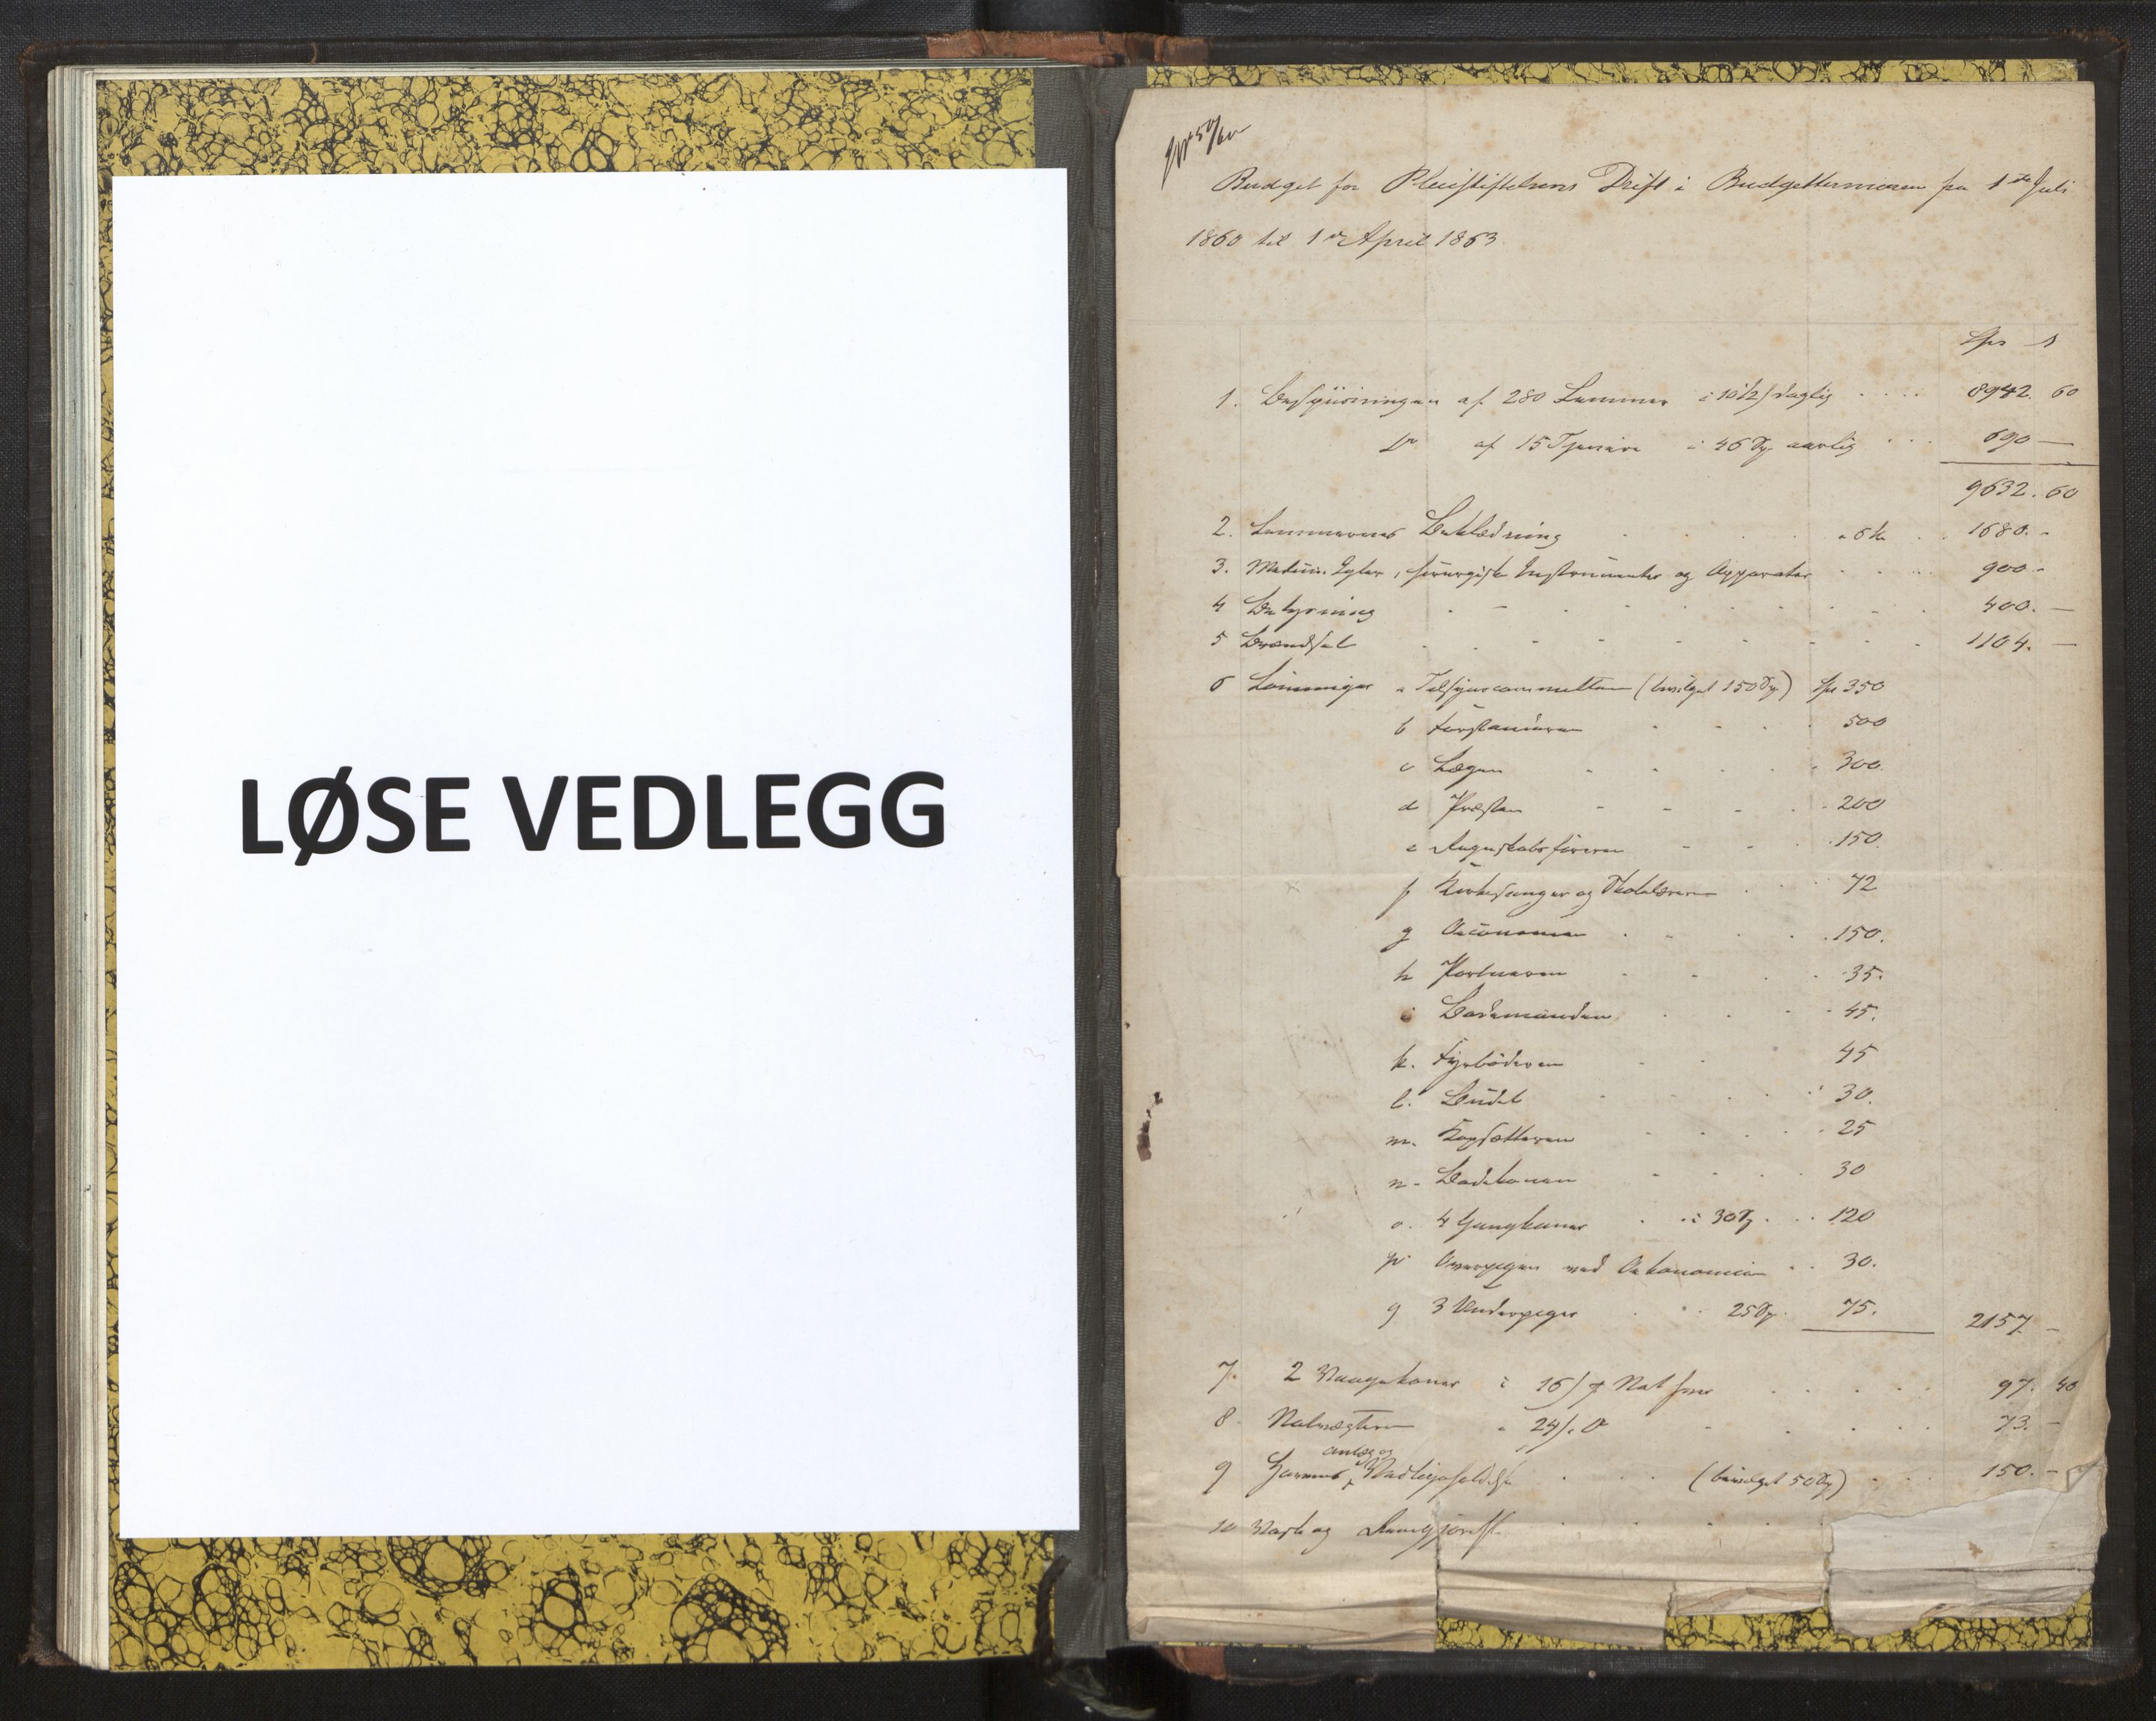 LØSE VEDLEGG
Budget for Pleiestiftelsens Drift i Budgetterminen fra 1ste Juli
1860 til 1ste April 1863
Spd s
1. Bespiisningen af 280 Lemmer à 10½ s daglig 8942. 60
Do af 15 Tjenere à 46 Spd aarlig 690 —
9632. 60
2. Lemmernes Beklædning à 6 1680. -
3. Medicin. Igler, chirurgiske Instrumenter og Apparater 900 -
4 Belysning 400. —
5 Brændsel 1104. —
6 Lønninger a Tilsynscommitteen (bevilget 150 Spd) Spd 350
b Forstanderen 500
c Lægen 300.
d Præsten 200
e Regnskabsføreren 150.
f Kirkesanger og Skolelærer 72
g Oeconomen 150.
h Portneren 35.
i Bademanden 45.
k. Fyrbøderen 45
l. Budet 30.
m. Kopsætteren 25
n. Badekonen 30
o. 4 Gangkoner à 30 Spd 120
p Overpigen ved Oekonomien 30.
q 3 Underpiger 25 Spd 75. 2157. -
7. 2 Vaagekoner à 16 s Nat 97. 40
8. Natvægteren à 24 s. Do 73. -
anlæg og
9 Havens Vedligeholdelse (bevilget 50 Spd) 150. -
10 Vask og Rengjørelse